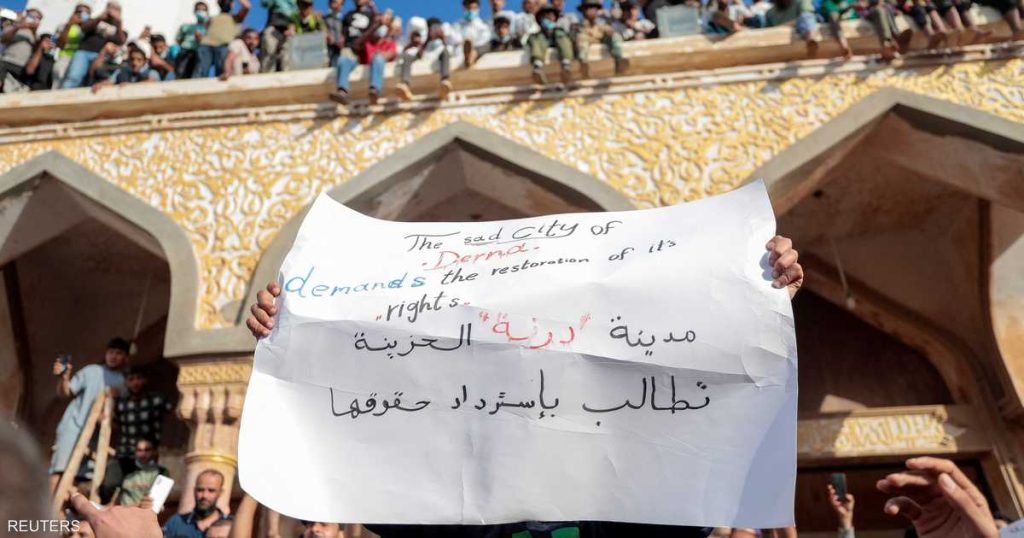 The sad City of
. Derna .
demands the restoration of it's
" rights "
مدينة "درنة" الحزينة
تطالب بإسترداد حقوقها
REUTERS